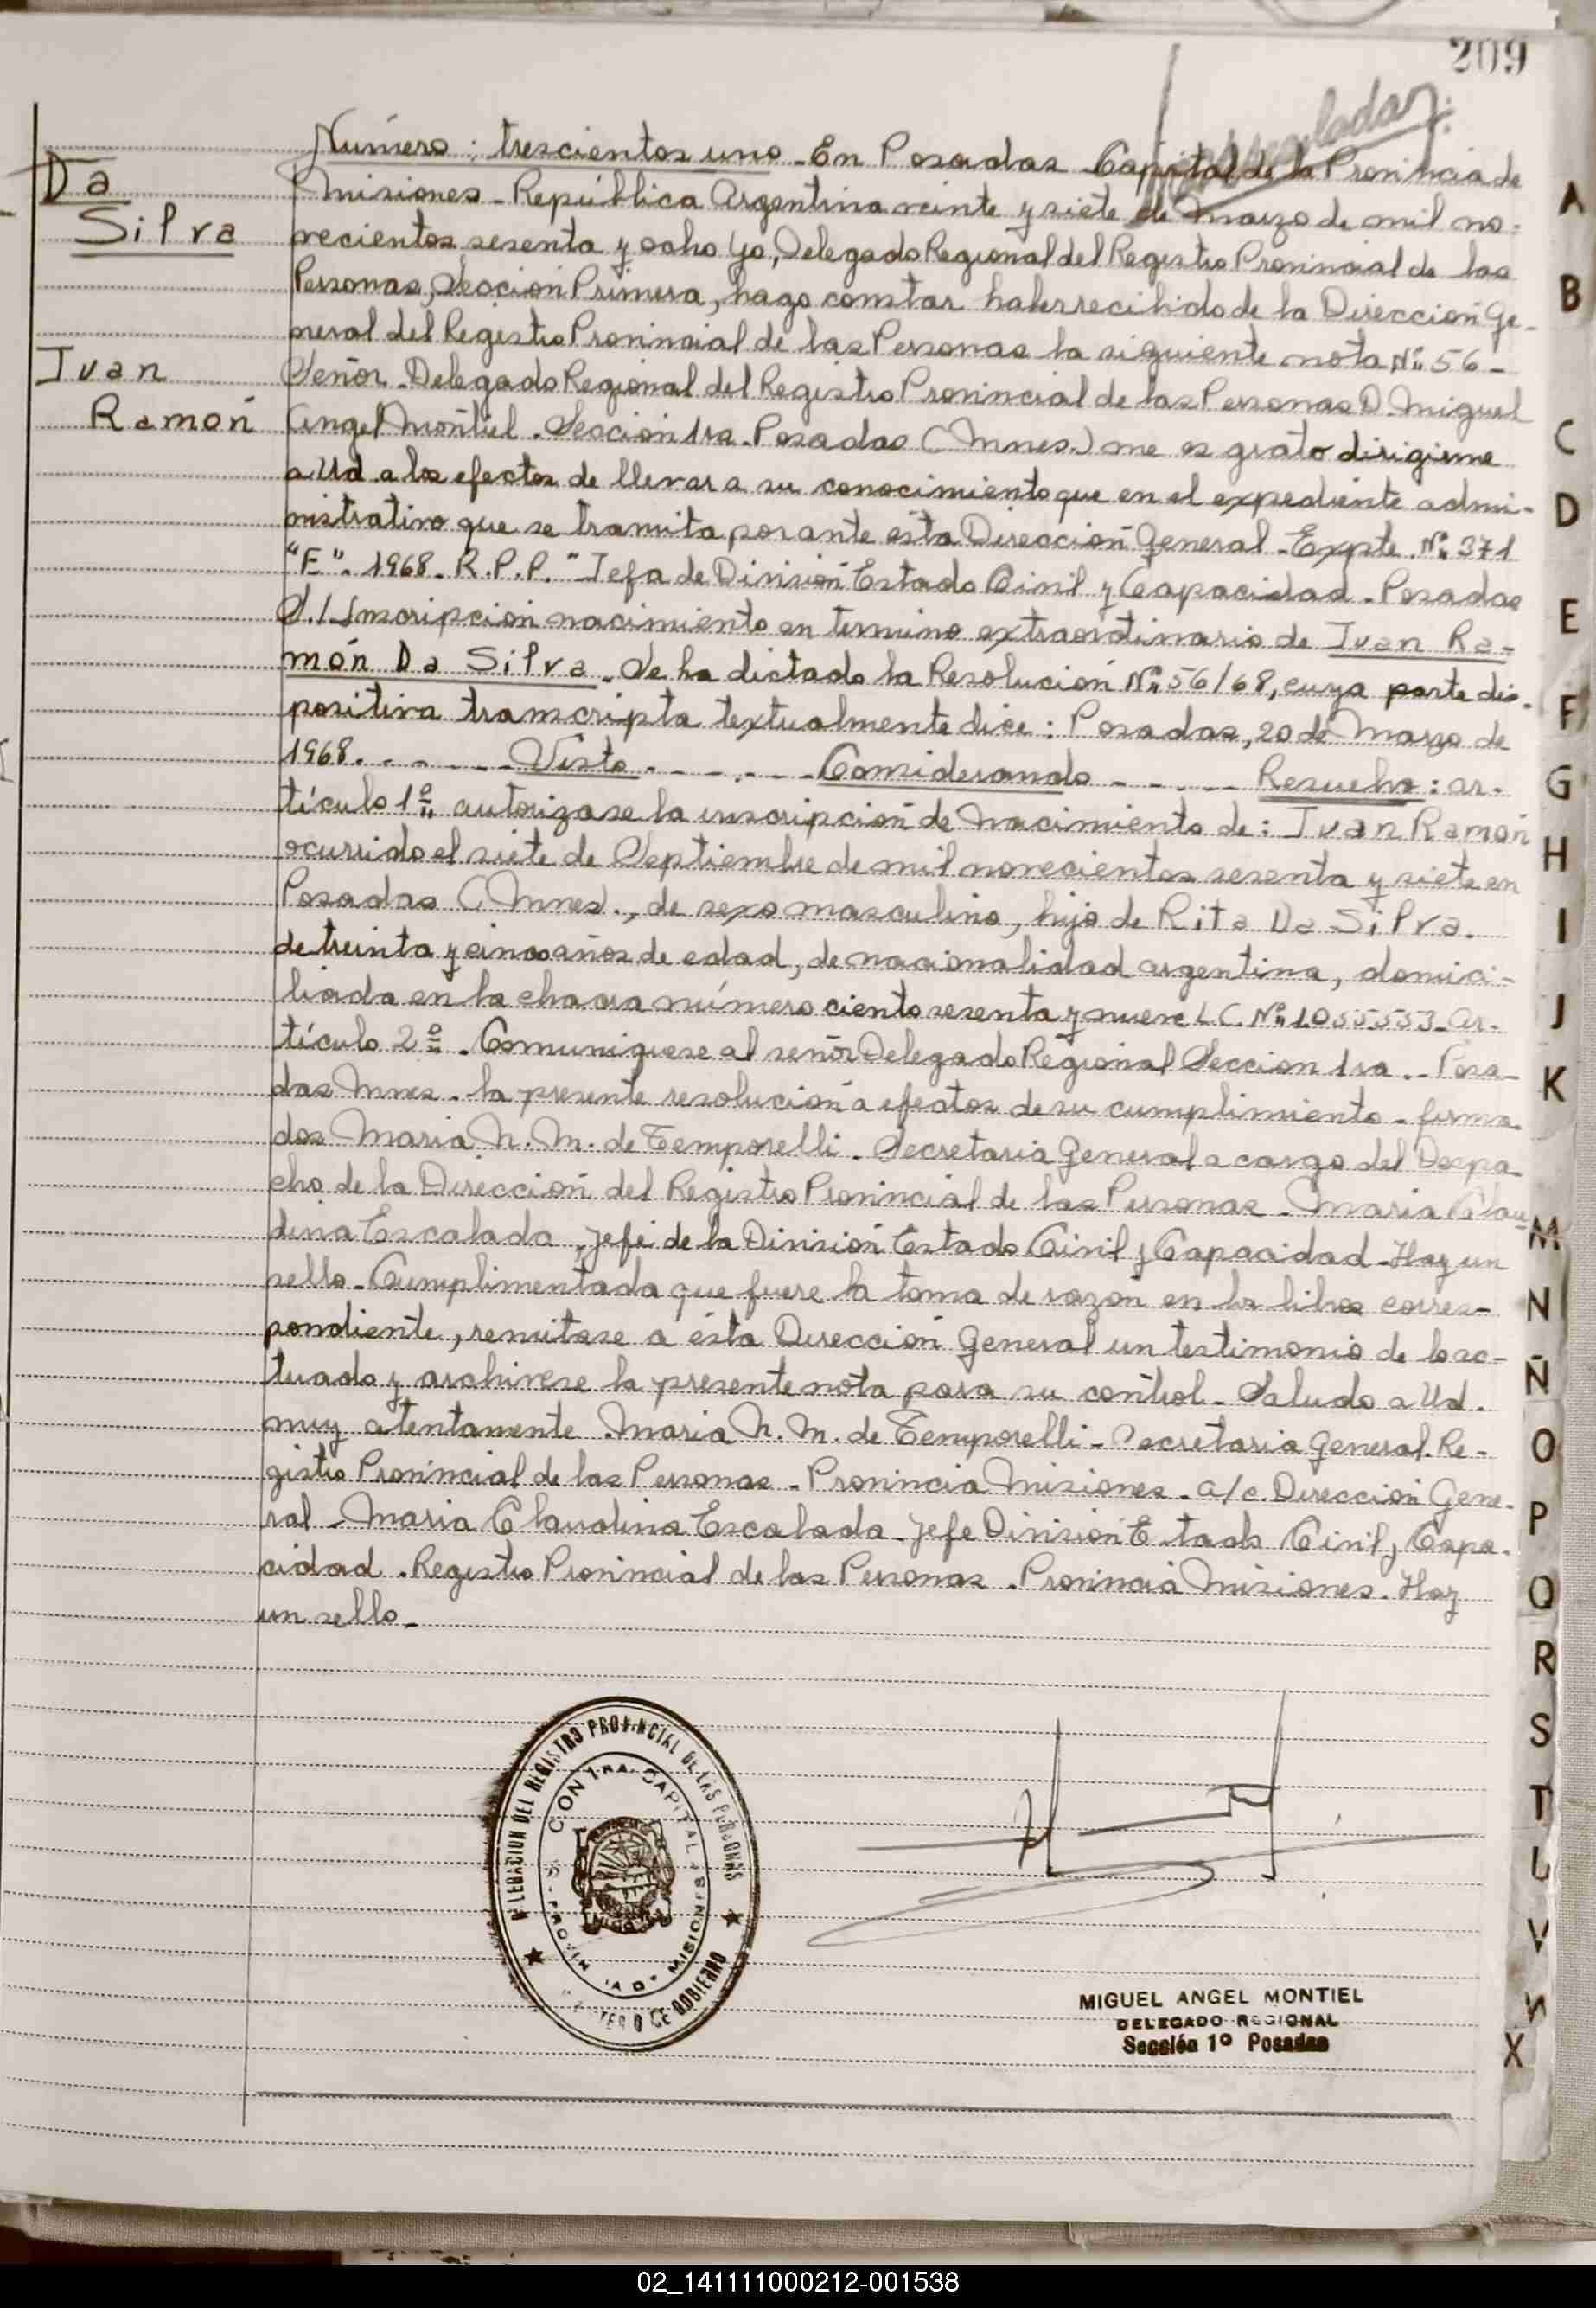 209
Da
Silva
Juan
Ramón
Número: trescientos uno - En Posadas Capital de la Provincia de
Misiones - República Argentina veinte y siete de Marzo de mil no-
vecientos sesenta y ocho Yo, Delegado Regional del Registro Provincial de las
Personas, Sección Primera, hago constar haber recibido de la Dirección Ge-
neral del Registro Provincial de las Personas la siguiente nota Nº 56 -
Señor - Delegado Regional del Registro Provincial de las Personas D. Miguel
Angel Montiel - Sección 1ra - Posadas (Mnes.) me es grato dirigirme
a Ud. a los efectos de llevar a su conocimiento que en el expediente admi-
nistrativo que se tramita por ante ésta Dirección General - Expte. Nº 371
"E". 1968. R.P.P. "Jefa de División Estado Civil y Capacidad - Posadas
S./Inscripción nacimiento en termino extraordinario de Juan Ra-
món Da Silva. Se ha dictado la Resolución Nº 56/68, cuya parte dis-
positiva transcripta textualmente dice: Posadas, 20 de Marzo de
1968. - - - - - Visto - - - - - - Considerando - - - - - Resuelve: ar-
tículo 1º autorizase la inscripción de nacimiento de: Juan Ramón
ocurrido el siete de Septiembre de mil novecientos sesenta y siete en
Posadas (Mnes)., de sexo masculino, hijo de Rita Da Silva.
de treinta y cinco años de edad, de nacionalidad argentina, domici-
liada en la chacra número ciento sesenta y nueve L.C. Nº 1055553 - Ar-
tículo 2º - Comuniquese al señor Delegado Regional Seccion 1ra - Posa-
das Mnes - la presente resolución a efectos de su cumplimiento - firma
dos Maria N. M. de Temporelli - Secretaria General a cargo del Despa
cho de la Dirección del Registro Provincial de las Personas - Maria Clau
dina Escalada - Jefe de la División Estado Civil y Capacidad - Hay un
sello - Cumplimentada que fuere la toma de razón en los libros corres-
pondiente, remitase a ésta Dirección General un testimonio de lo ac-
tuado y archivese la presente nota para su control - Saludo a Ud.
muy atentamente. Maria N. M. de Temporelli - Secretaria General. Re-
gistro Provincial de las Personas - Provincia Misiones - a/c. Dirección Gene-
ral - Maria Claudina Escalada - Jefe División Estado Civil y Capa-
cidad. Registro Provincial de las Personas. Provincia Misiones. Hay
un sello -
DELEGACION DEL REGISTRO PROVINCIAL DE LAS PERSONAS
CAPITAL
MISIONES
DE GOBIERNO
MIGUEL ANGEL MONTIEL
DELEGADO REGIONAL
Sección 1º Posadas
A
B
C
D
E
F
G
H
I
J
K
M
N
Ñ
O
P
Q
R
S
T
U
V
W
X
02_141111000212-001538